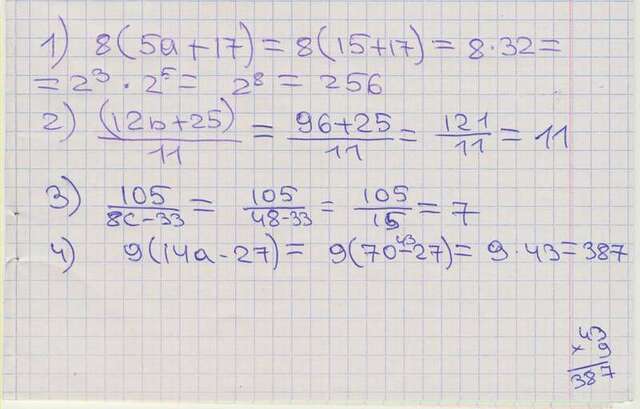 1) 8(5a+17) = 8(15+17) = 8·32 =
= 2³ · 2⁵ = 2⁸ = 256
2) (12b+25)/11 = (96+25)/11 = 121/11 = 11
3) 105/(8c-33) = 105/(48-33) = 105/15 = 7
4) 9(14a-27) = 9(70-27) = 9·43 = 387
43
43
× 9
387